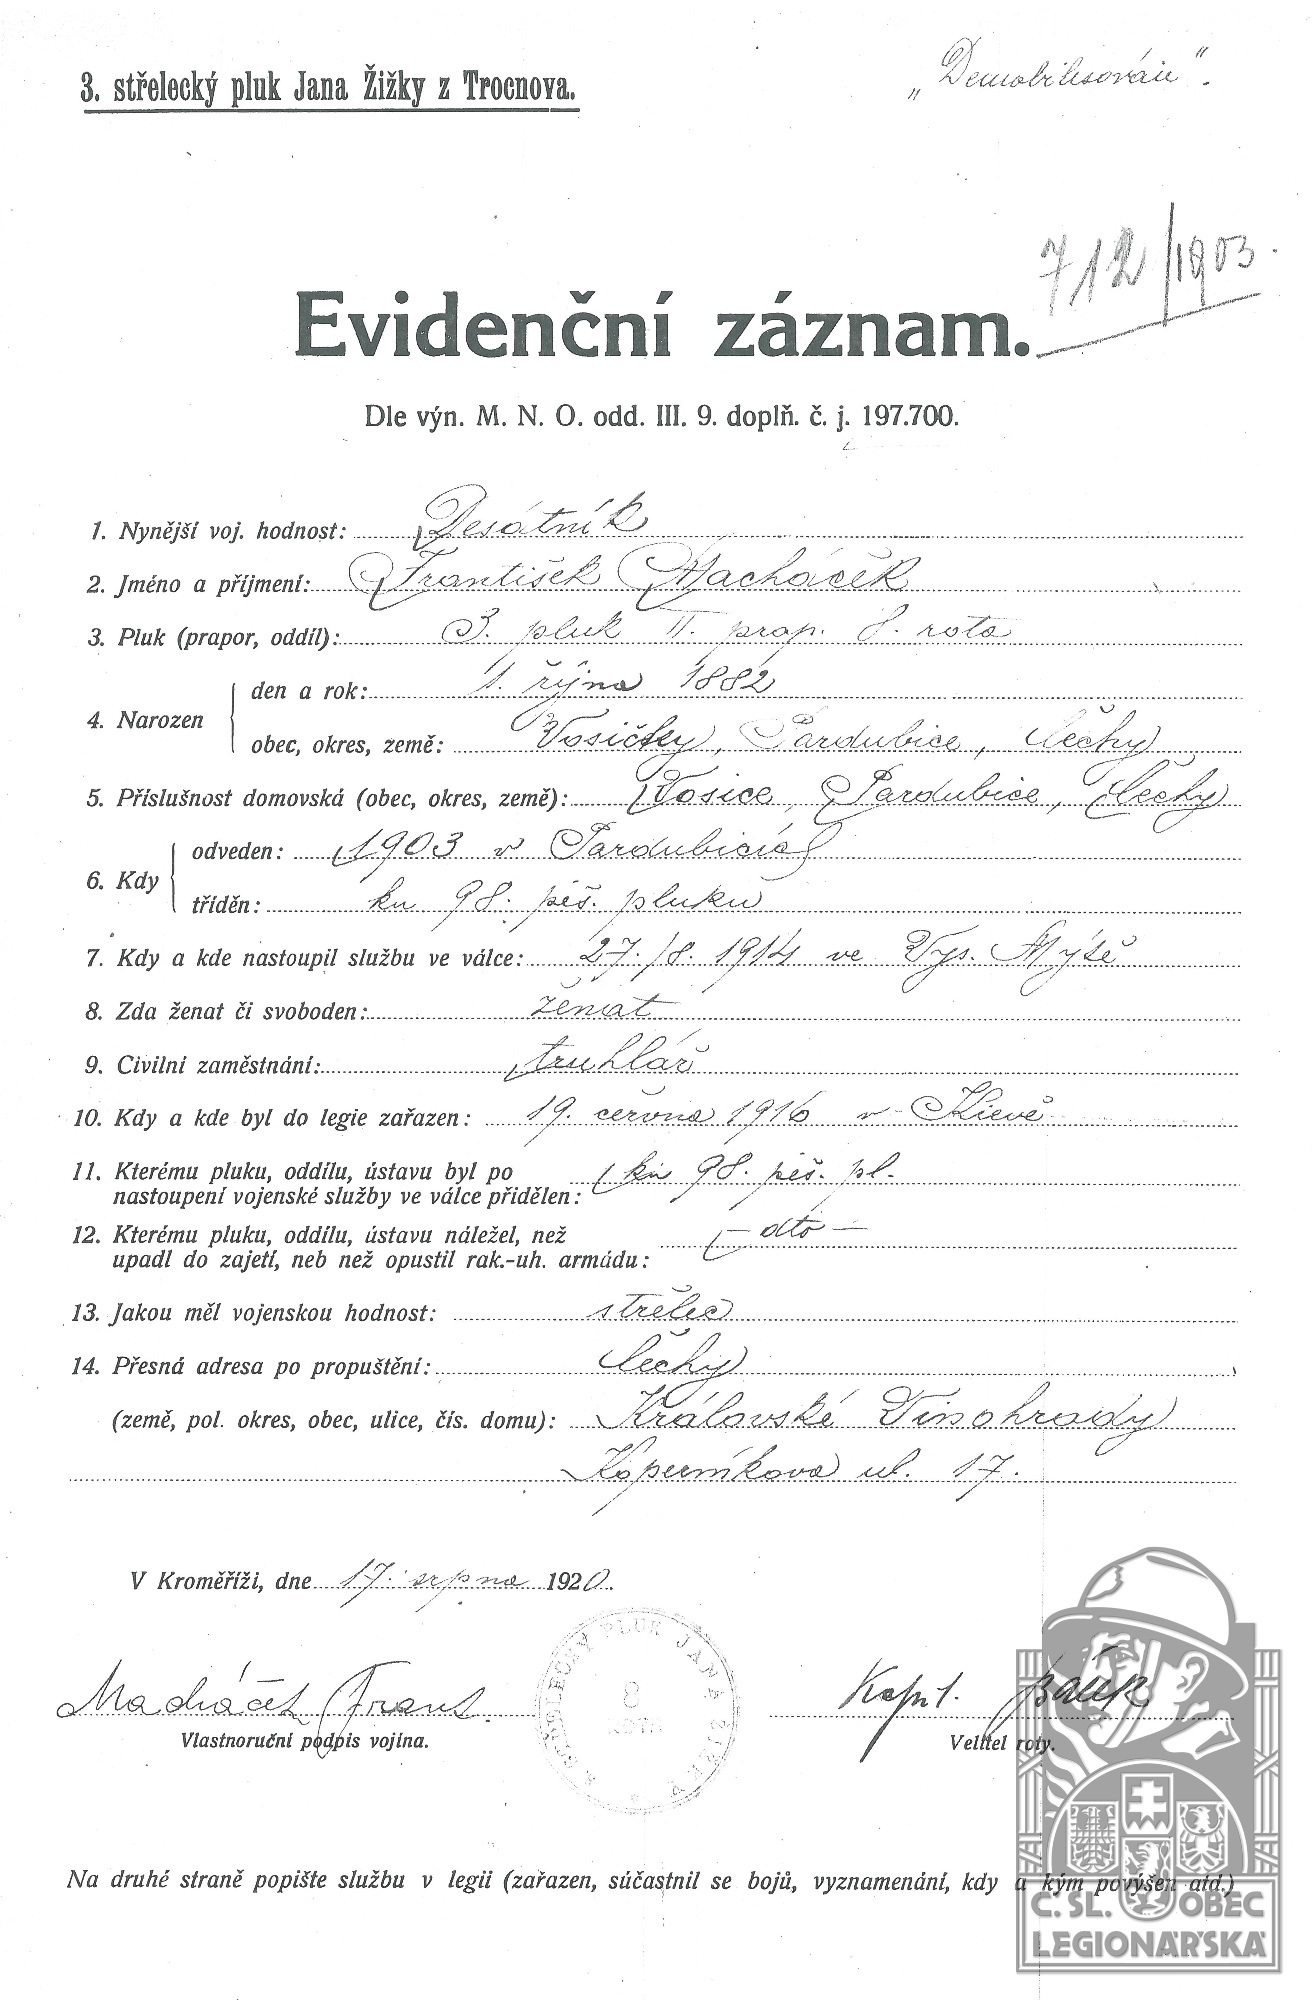 3. střelecký pluk Jana Žižky z Trocnova.
„Demobilisován“.
712/1903.
Evidenční záznam.
Dle výn. M. N. O. odd. III. 9. doplň. č. j. 197.700.
1. Nynější voj. hodnost: Desátník
2. Jméno a příjmení: František Macháček
3. Pluk (prapor, oddíl): 3. pluk II. prap. 8. rota
4. Narozen
den a rok: 1. října 1882
obec, okres, země: Vosičky, Pardubice, Čechy
5. Příslušnost domovská (obec, okres, země): Vosice, Pardubice, Čechy
6. Kdy
odveden: 1903 v Pardubicích
tříděn: ku 98. pěš. pluku
7. Kdy a kde nastoupil službu ve válce: 27./8. 1914 ve Vys. Mýtě
8. Zda ženat či svoboden: ženat
9. Civilní zaměstnání: truhlář
10. Kdy a kde byl do legie zařazen: 19. června 1916 v Kievě
11. Kterému pluku, oddílu, ústavu byl po
nastoupení vojenské služby ve válce přidělen: ku 98. pěš. pl.
12. Kterému pluku, oddílu, ústavu náležel, než
upadl do zajetí, neb než opustil rak.-uh. armádu: – dto –
13. Jakou měl vojenskou hodnost: střelec
14. Přesná adresa po propuštění: Čechy
(země, pol. okres, obec, ulice, čís. domu): Královské Vinohrady
Koperníkova ul. 17.
V Kroměříži, dne 17. srpna 1920.
Macháček Frant.
Vlastnoruční podpis vojína.
STŘELECKÝ PLUK JANA ŽIŽKY
8
ROTA
Kapt.
Velitel roty.
Na druhé straně popište službu v legii (zařazen, súčastnil se bojů, vyznamenání, kdy a kým povýšen atd.)
Č. SL. OBEC
LEGIONÁŘSKÁ